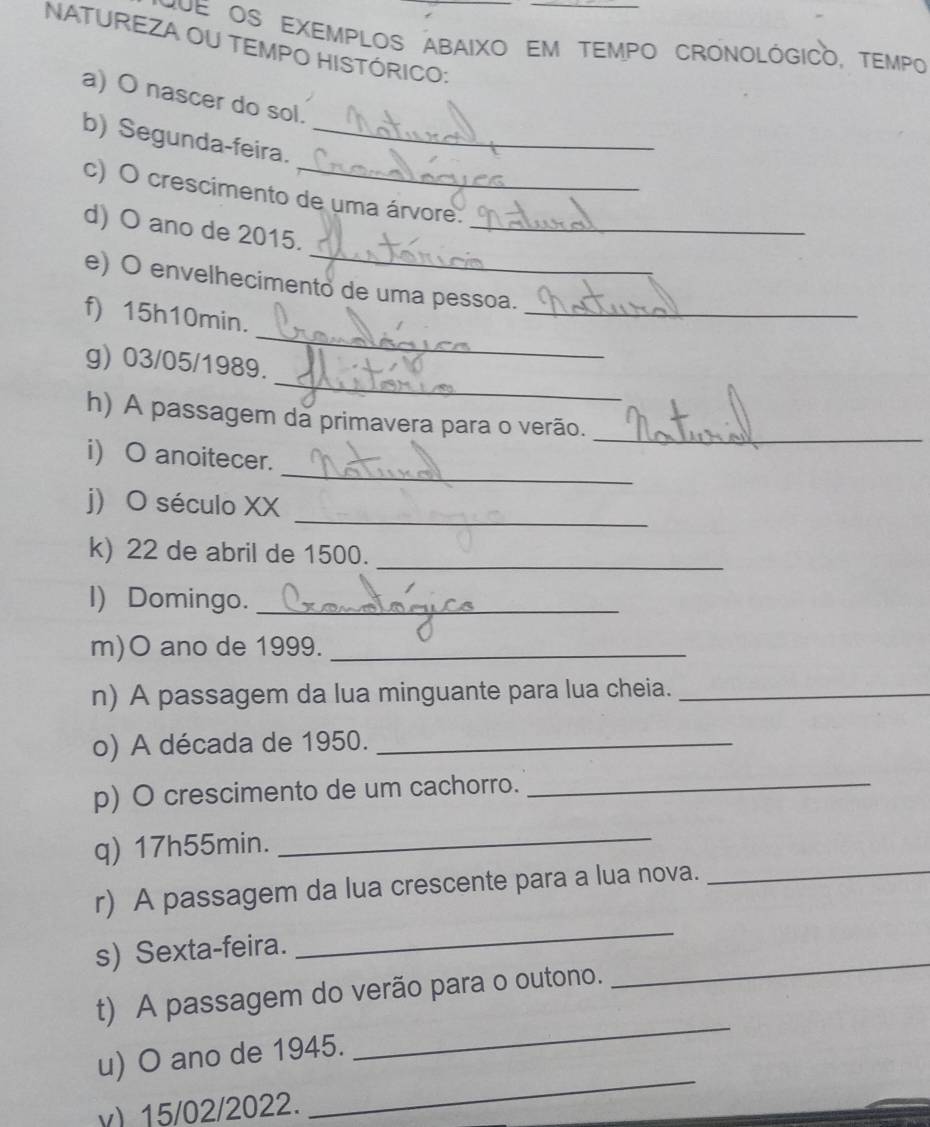 OS EXEMPLOS ABAIXO EM TEMPO CRONOLÓGICO, TEMPO
NATUREZA OU TEMPO HISTÓRICO:
a) O nascer do sol. Natural
b) Segunda-feira. Cronológico
c) O crescimento de uma árvore. Natural
d) O ano de 2015. Histórico
e) O envelhecimento de uma pessoa. Natural
f) 15h10min. Cronológico
g) 03/05/1989. Histórico
h) A passagem da primavera para o verão. Natural
i) O anoitecer. Natural
j) O século XX
k) 22 de abril de 1500.
l) Domingo. Cronológico
m) O ano de 1999.
n) A passagem da lua minguante para lua cheia.
o) A década de 1950.
p) O crescimento de um cachorro.
q) 17h55min.
r) A passagem da lua crescente para a lua nova.
s) Sexta-feira.
t) A passagem do verão para o outono.
u) O ano de 1945.
v) 15/02/2022.